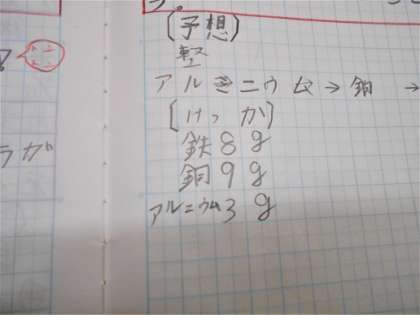 〔予想〕
軽
アルミニウム→銅→
〔けっか〕
鉄8g
銅9g
アルニウム3g
ラガ